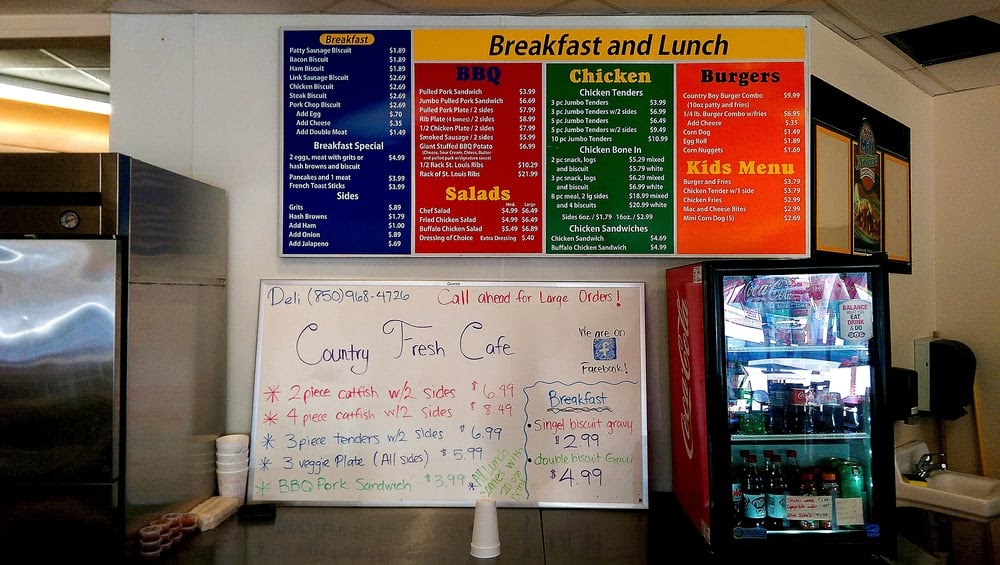 Breakfast
Patty Sausage Biscuit $1.89
Bacon Biscuit $1.89
Ham Biscuit $1.89
Link Sausage Biscuit $2.69
Chicken Biscuit $2.69
Steak Biscuit $2.69
Pork Chop Biscuit $2.69
Add Egg $.70
Add Cheese $.35
Add Double Meat $1.49
Breakfast Special
2 eggs, meat with grits or $4.99
hash browns and biscuit
Pancakes and 1 meat $3.99
French Toast Sticks $3.99
Sides
Grits $.89
Hash Browns $1.79
Add Ham $1.00
Add Onion $.89
Add Jalapeno $.69
Breakfast and Lunch
BBQ
Pulled Pork Sandwich $3.99
Jumbo Pulled Pork Sandwich $6.69
Pulled Pork Plate / 2 sides $7.99
Rib Plate (4 bones) / 2 sides $8.99
1/2 Chicken Plate / 2 sides $7.99
Smoked Sausage / 2 sides $5.99
Giant Stuffed BBQ Potato $6.99
(Cheese, Sour Cream, Chives, Butter
and pulled pork w/signature sauce)
1/2 Rack St. Louis Ribs $10.29
Rack of St. Louis Ribs $21.99
Salads
Med. Large
Chef Salad $4.99 $6.49
Fried Chicken Salad $4.99 $6.49
Buffalo Chicken Salad $5.49 $6.89
Dressing of Choice Extra Dressing $.40
Chicken
Chicken Tenders
3 pc Jumbo Tenders $3.99
3 pc Jumbo Tenders w/2 sides $6.99
5 pc Jumbo Tenders $6.49
5 pc Jumbo Tenders w/2 sides $9.49
10 pc Jumbo Tenders $10.99
Chicken Bone In
2 pc snack, logs $5.29 mixed
and biscuit $5.79 white
3 pc snack, logs $6.29 mixed
and biscuit $6.99 white
8 pc meal, 2 lg sides $18.99 mixed
and 4 biscuits $20.99 white
Sides 6oz / $1.79 16oz / $2.99
Chicken Sandwiches
Chicken Sandwich $4.69
Buffalo Chicken Sandwich $4.99
Burgers
Country Boy Burger Combo $9.99
(10oz patty and fries)
1/4 lb. Burger Combo w/fries $6.95
Add Cheese $.35
Corn Dog $1.49
Egg Roll $1.89
Corn Nuggets $1.69
Kids Menu
Burger and Fries $3.79
Chicken Tender w/1 side $3.79
Chicken Fries $2.99
Mac and Cheese Bites $2.99
Mini Corn Dog (5) $2.69
Deli (850)968-4726 Call ahead for Large Orders!
Country Fresh Cafe
We are on
f
Facebook!
* 2 piece catfish w/2 sides $6.49
* 4 piece catfish w/2 sides $8.49
* 3 piece tenders w/2 sides $6.99
* 3 veggie Plate (All sides) $5.99
* BBQ Pork Sandwich $3.99
* All Lunch
comes with
Breakfast
• Singel biscuit gravy
$2.99
• double biscuit Gravy
$4.99
Coca-Cola
Coca-Cola
BALANCE
WHAT YOU
EAT
DRINK
& DO